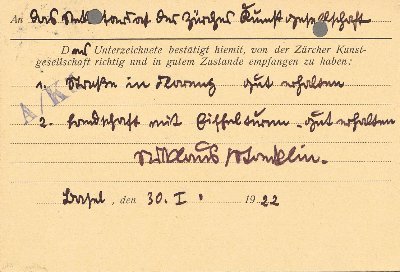 An das Sekretariat der Zürcher Kunstgesellschaft
Das Unterzeichnete bestätigt hiemit, von der Zürcher Kunst-
gesellschaft richtig und in gutem Zustande empfangen zu haben:
1. Straße in gut erhalten
2. Landschaft mit Eiffelturm. gut erhalten
A/K
Niklaus Stoecklin.
Basel, den 30. I. 1922